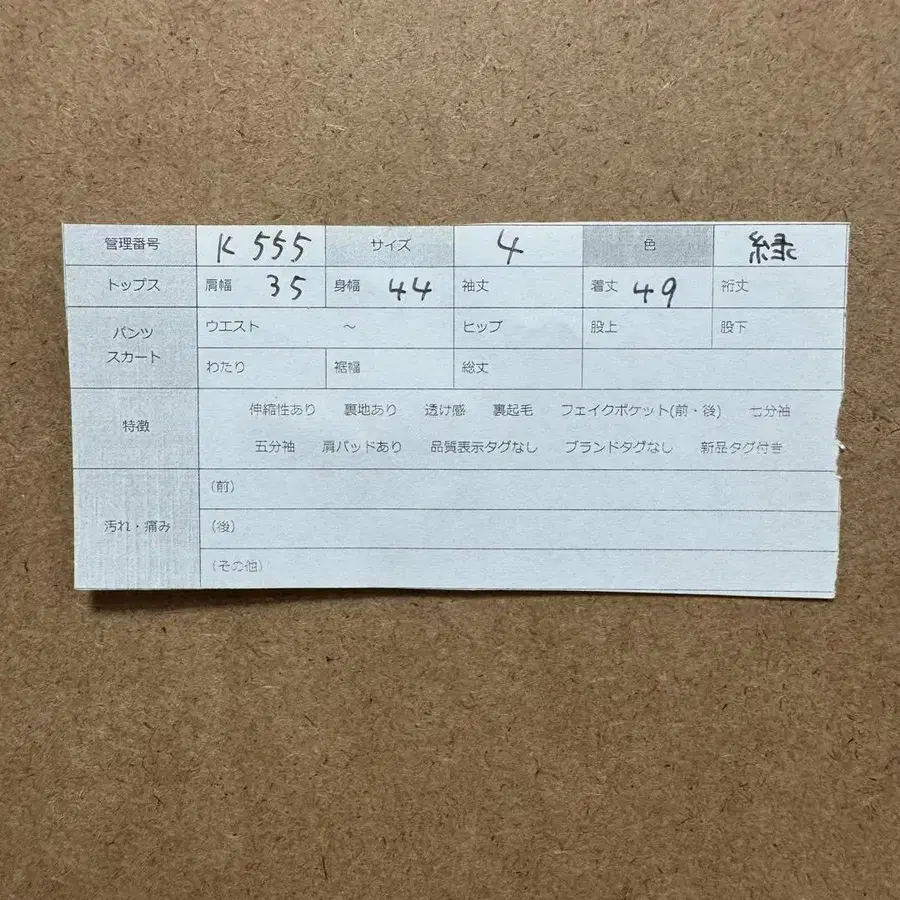 管理番号 K555 サイズ 4 色 緑
トップス 肩幅 35 身幅 44 袖丈 着丈 49 裄丈
パンツ スカート ウエスト ～ ヒップ 股上 股下
わたり 裾幅 総丈
特徴 伸縮性あり 裏地あり 透け感 裏起毛 フェイクポケット(前・後) 七分袖
五分袖 肩パッドあり 品質表示タグなし ブランドタグなし 新品タグ付き
汚れ・痛み (前)
(後)
(その他)